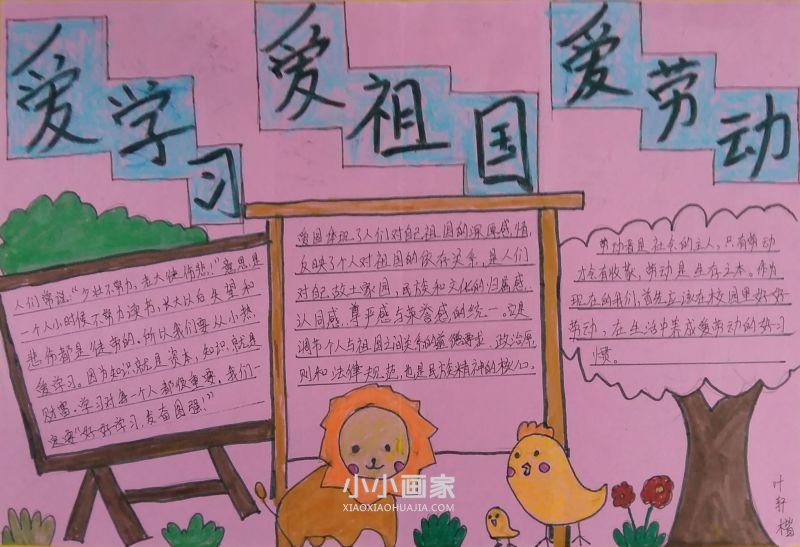 爱学习
爱祖国
爱劳动
人们常说:“少壮不努力,老大徒伤悲!”意思是
一个人小时候不努力读书,长大以后失望和
悲伤都是徒劳的。所以我们要从小热
爱学习。因为知识就是资本,知识就是
财富。学习对每一个人都很重要,我们一
定要“好好学习,发奋图强!”
爱国体现了人们对自己祖国的深厚感情,
反映了个人对祖国的依存关系,是人们
对自己故土家园,民族和文化的归属感,
认同感,尊严感与荣誉感的统一。它是
调节个人与祖国之间关系的道德要求,政治原
则和法律规范,也是民族精神的核心。
劳动者是社会的主人,只有劳动
才会有收获,劳动是生存之本。作为
现在的我们,首先应该在校园里好好
劳动,在生活中养成爱劳动的好习
惯。
小小画家
XIAOXIAOHUAJIA.COM
叶轩楷